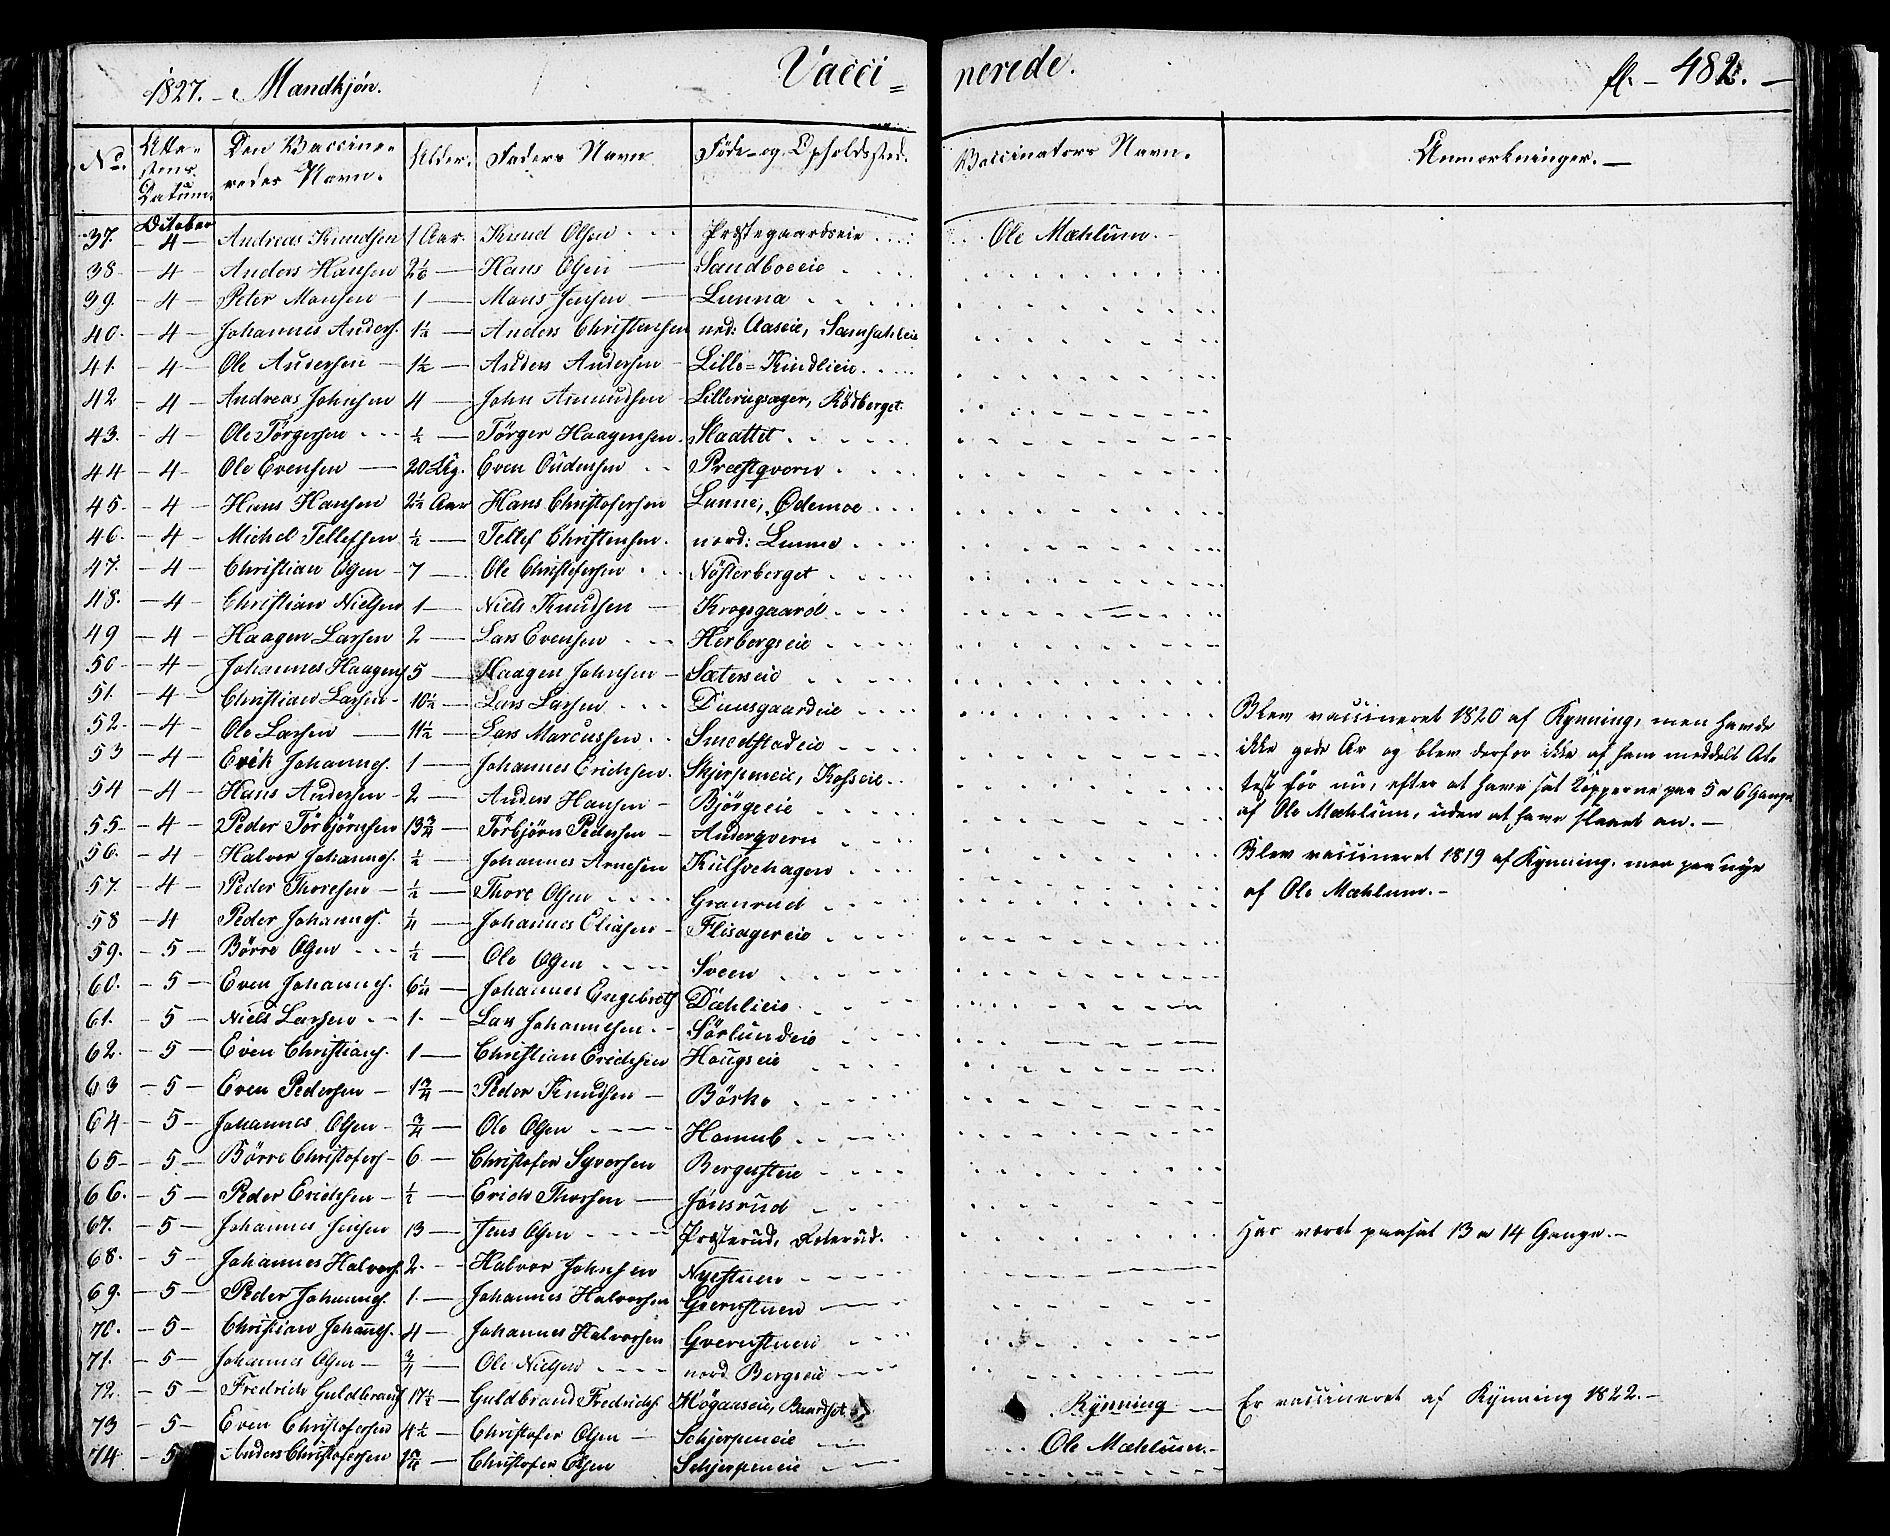 1827. - Mandkjøn. Vacci= nerede. fl. - 482. -
No. Atte-stens Datum. Den Vaccineredes Navn. Alder. Faders Navn Føde- og Opholdssted. Vaccinators Navn. Anmærkninger. -
October
37. - 4 - Andreas Knudsen 1 Aar. Knud Olsen Præstegaardseie Ole Mæhlum. -
38 - 4 - Anders Hansen Hans Olsen Sandboeeie
39. - 4 - Peter Monsen 1 - Mons Jensen Lunna
40. - 4 - Johannes Anders. 1½ - Anders Christensen ned: Aaseie,
41. - 4 - Ole Andersen 1½ - Anders Andersen Lille=Kindlieie
42 - 4 - Andreas Johnsen 4 - John Amundsen Lilleringsager, Rödberget
43. - 4 - Ole Törgersen ½ - Törger Haagensen. Slaattet
44 - 4 - Ole Evensen 20 Ug. Even Oudensen Præstqvern
45. - 4 - Hans Hansen 2½ Aar Hans Christofersen Lunne, Ödemoe
46. - 4 - Michel Tellefsen ½ - Tellef Christensen. nord: Lunne
47. - 4 - Christian Olsen - 7 - Ole Christofersen Nösterberget
48. - 4 - Christian Nielsen 1 - Niels Knudsen - Krogsgaard
49 - 4 - Haagen Larsen 2 - Lars Evensen Herbergseie
50 - 4 - Johannes Haagens 5 - Haagen Johnsen - Sæterseie
51. - 4 - Christian Larsen - 10½ - Lars Larsen Duusgaardeie
52. - 4 - Ole Larsen 11½ - Lars Marcussen Smedstadeie
Blev vaccineret 1820 af Kynning, men havde
ikke gode Ar og blev derfor ikke af ham meddelt At-
test før nu, efter at have sat Kopperne paa 5 a 6 Gange
af Ole Mæhlum, uden at have slaaet an. -
53 - 4 - Erich Johannes. 1 - Johannes Erichsen. Skjerpeneie, Kosseie
54 - 4 - Hans Andersen - 2 - Anders Hansen - Bjørgeeie
55 - 4 - Peder Törbjörnsen 13¾ - Törbjörn Pedersen - Anderqvern
Blev vaccineret 1819 af Kynning. men paa nye
af Ole Mæhlum. -
56. - 4 - Halvor Johannes. ½ - Johannes Arnesen Kulsvehagen
57. - 4 - Peder Thoresen - ½ - Thore Olsen Granrud
58 - 4 Peder Johannes. ¼ - Johannes Eliasen - Flisagereie
59. - 5 - Börre Olsen ½ - Ole Olsen Sveen
60. - 5 - Even Johannes. 6¼ - Johannes Engebrets Dæhlieie
61. - 5 - Niels Larsen 1. - Lars Johannesen Sörlundeie
62. - 5 - Even Christians. 1 - Christian Erichsen Hougseie
63 - 5 - Even Pedersen - 1¾ - Peder Knudsen - Börke
64 - 5 - Johannes Olsen - ¾ - Ole Olsen
65 - 5 - Börre Christofers - 6 - Christofer Syversen Bergersteie
66. - 5 - Peder Erichsen - ½ - Erich Thorsen Jönsrud
67. - 5 - Johannes Jensen 13 - Jens Olsen Præsterud, Har været paasat 13 a 14 Gange. -
68. - 5 - Johannes Halvors. 2 - Halvor Johnsen Nyestuen
69. - 5 - Peder Johannes. 1. - Johannes Halvorsen Gvernstuen
70. - 5 - Christian Johannes. 4 - Johannes Halvorsen Gvernstuen
71. - 5 - Johannes Olsen - ¾ - Ole Nielsen nord Bergseie
72. - 5 - Fredrich Guldbrands 17½ - Guldbrand Fredrichs. Högaaseie, Kynning - Er vaccineret af Kynning 1822. -
73 - 5 - Even Christofersen 4½ - Christofer Olsen Schjerpeneie Ole Mæhlum. -
74 - 5 Anders Christofersen Christofer Olsen Schjerpeneie